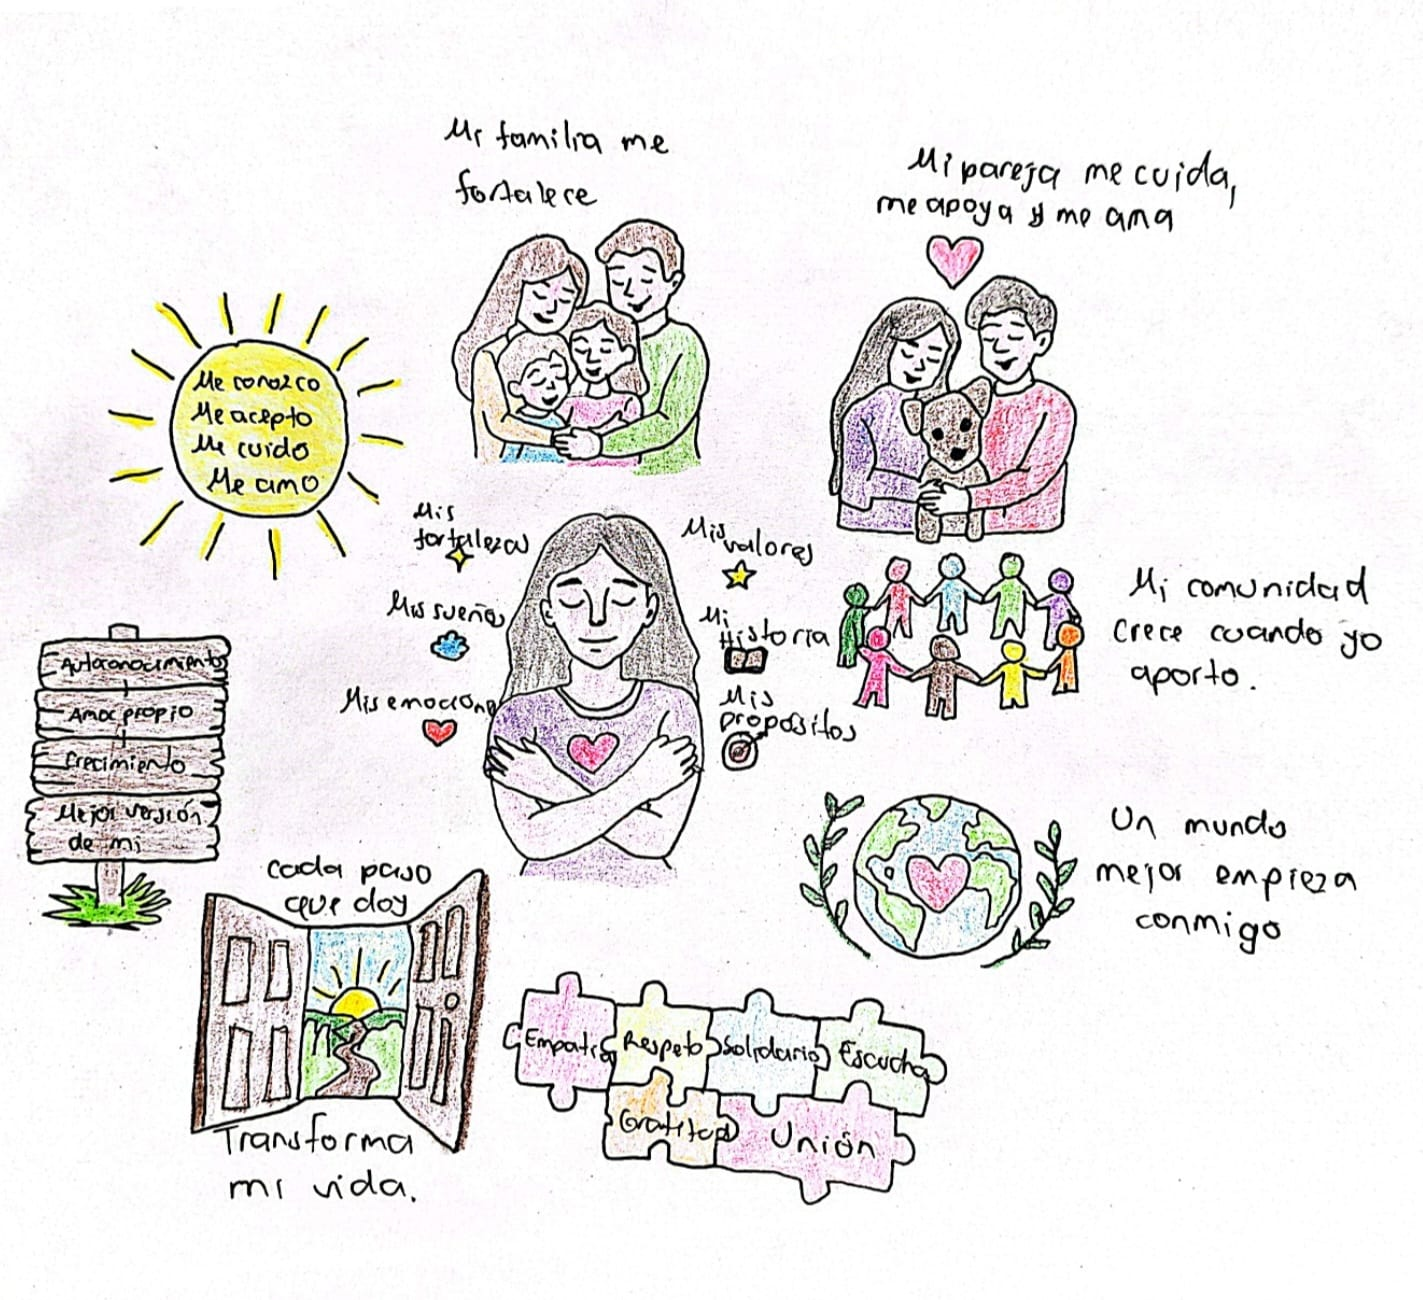 Mi familia me
fortalece
Mi pareja me cuida,
me apoya y me ama
Me conozco
Me acepto
Me cuido
Me amo
Mis
fortalezas
Mis sueños
Mis emociones
Mis valores
Mi
Historia
Mis
propósitos
Mi comunidad
crece cuando yo
aporto.
Autoconocimiento
Amor propio
Crecimiento
Mejor versión
de mi
Un mundo
mejor empieza
conmigo
cada paso
que doy
Transforma
mi vida.
Empatía Respeto Solidario Escucha
Gratitud Unión